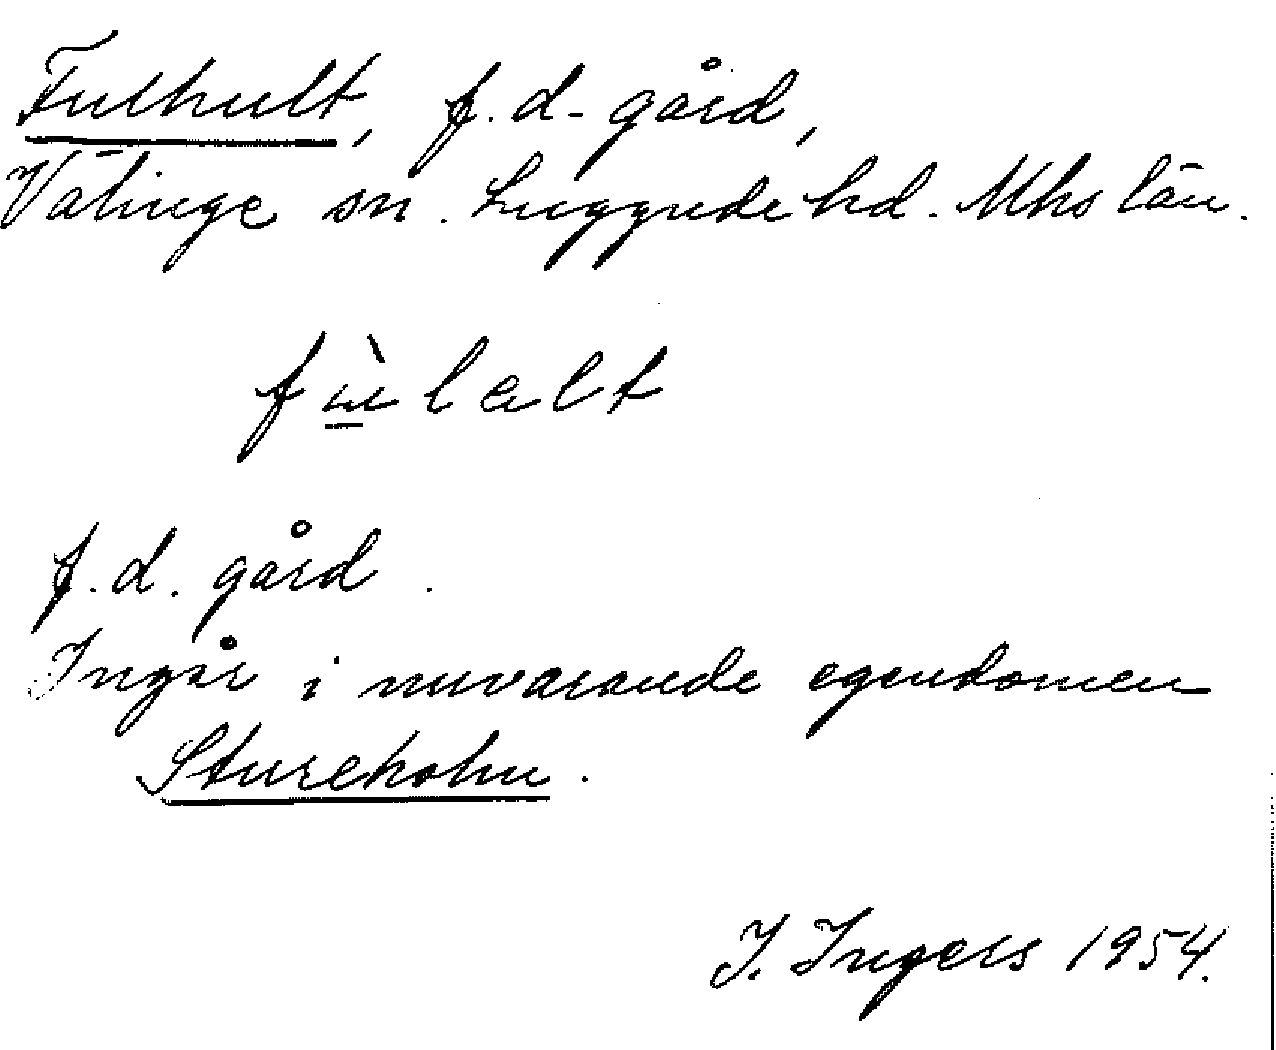 Fulhult, f.d. gård,
Välinge sn. Luggude hd. Mhs län.
fùlalt
f.d. gård.
Ingår i nuvarande egendomen
Stureholm.
I. Ingers 1954.